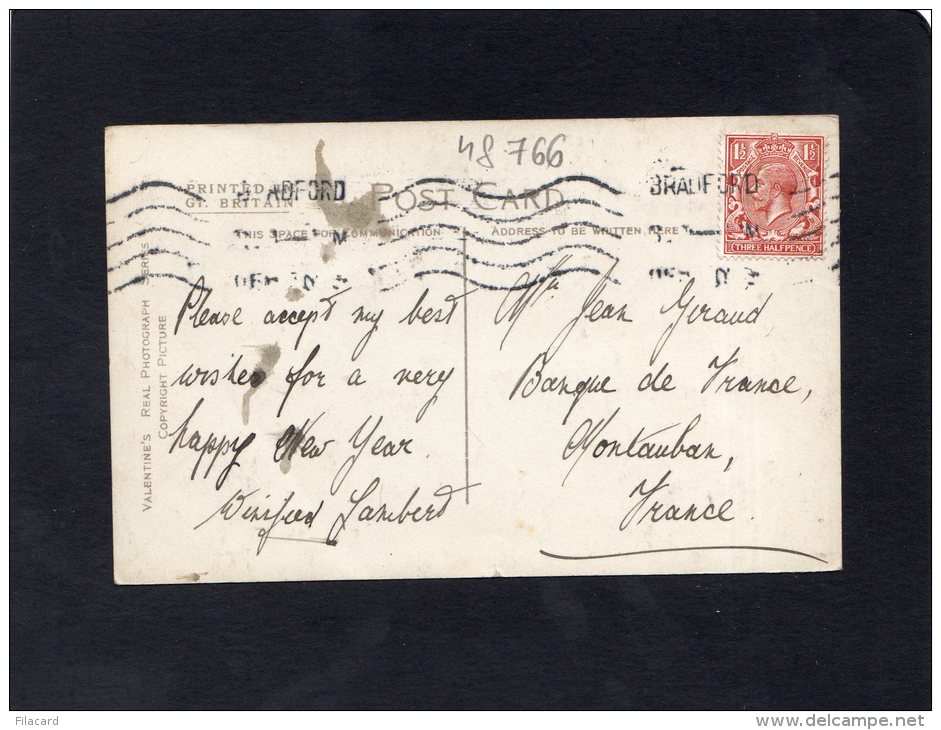 48766
PRINTED IN
GT. BRITAIN
POST CARD
THIS SPACE FOR COMMUNICATION
ADDRESS TO BE WRITTEN HERE
BRADFORD
1½ 1½
THREE HALFPENCE
VALENTINE'S REAL PHOTOGRAPH SERIES
COPYRIGHT PICTURE
Please accept my best
wishes for a very
happy New Year.
Winifred Lambert
Jean Geraud
Banque de France,
Montauban,
France.
Filacard
www.delcampe.net